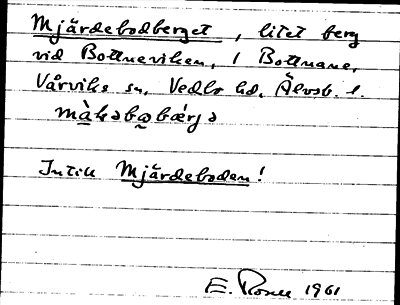 Mjärdebodberget, litet berg
vid Bottneviken, i Bottnane,
Vårviks sn, Vedbo hd, Älvsb. l.
Intill Mjärdeboden!
E. 1961